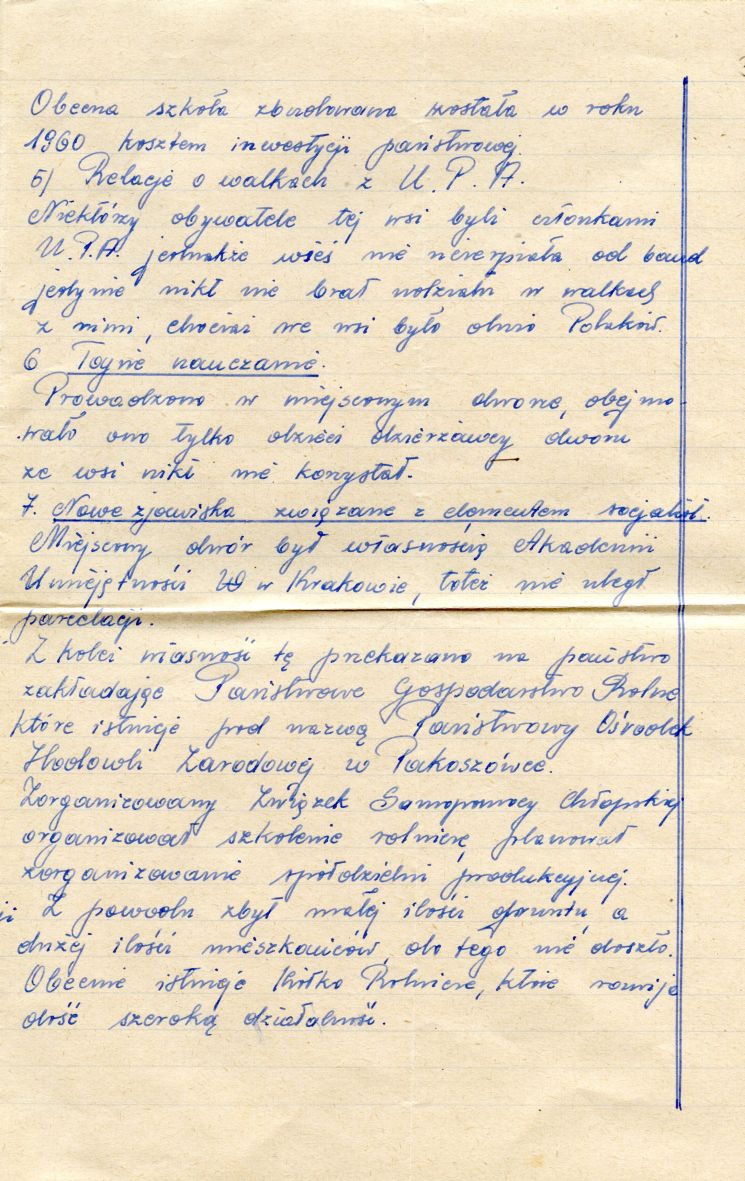 Obecna szkoła zbudowana została w roku
1960 kosztem inwestycji państwowej.
5) Relacje o walkach z U. P. A.
Niektórzy obywatele tej wsi byli członkami
U. P.A. jednakże wieś nie ucierpiała od band
jedynie nikt nie brał udziału w walkach
z nimi, chociaż we wsi było dużo Polaków.
6 Tajne nauczanie.
Prowadzono w miejscowym dworze, obejmo-
wało ono tylko dzieci dzierżawcy dworu
ze wsi nikt nie korzystał.
7. Nowe zjawiska związane z elementem socjalist.
Miejscowy dwór był własnością Akademii
Umiejętności w Krakowie, toteż nie uległ
parcelacji.
Z kolei własność tę przekazano na państwo
zakładając Państwowe Gospodarstwo Rolne
które istnieje pod nazwą Państwowy Ośrodek
Hodowli Zarodowej w Pakoszówce.
Zorganizowany Związek Samopomocy Chłopskiej
organizował szkolenie rolnicze, planował
zorganizowanie spółdzielni produkcyjnej.
Z powodu zbyt małej ilości gruntu, a
dużej ilości mieszkańców, do tego nie doszło.
Obecnie istnieje Kółko Rolnicze, które rozwija
dość szeroką działalność.